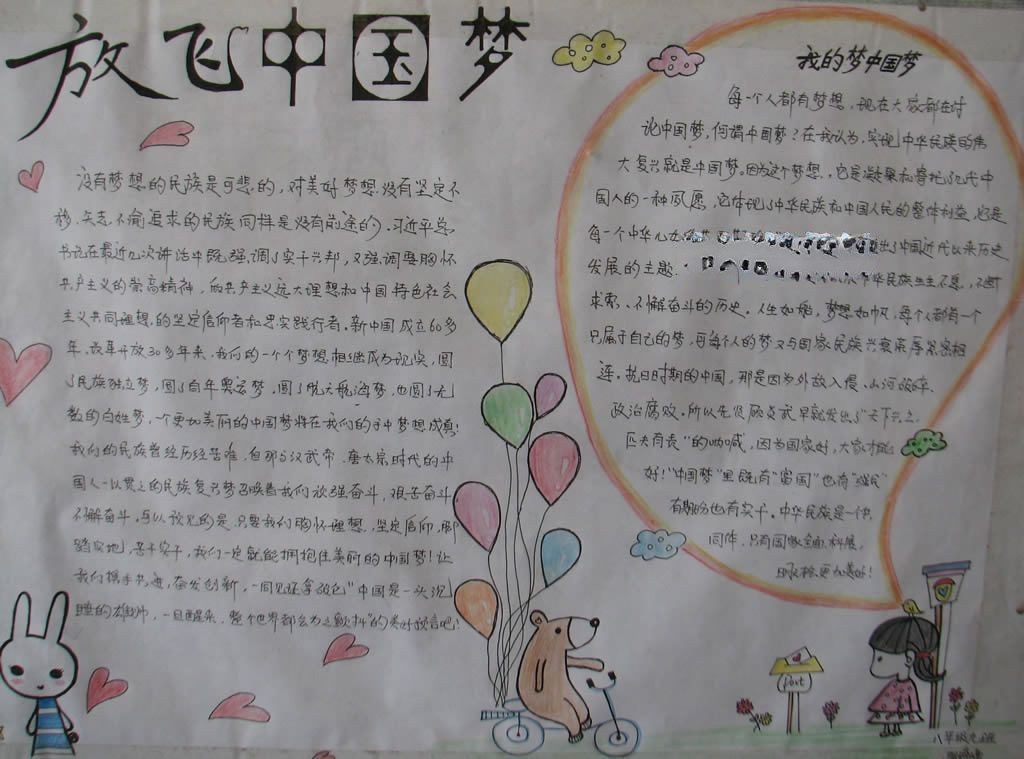 放飞中国梦
没有梦想的民族是可悲的,对美好梦想没有坚定不
移、矢志不渝追求的民族同样是没有前途的。习近平总
书记在最近几次讲话中既强调了实干兴邦,又强调要胸怀
共产主义的崇高精神,而共产主义远大理想和中国特色社会
主义共同理想的坚定信仰者和忠实践行者。新中国成立60多
年、改革开放30多年来,我们的一个个梦想相继成为现实,圆
了民族独立梦,圆了百年奥运梦,圆了航天航海梦,也圆了无
数的百姓梦,一个更加美丽的中国梦将在我们的手中梦想成真!
我们的民族曾经历经苦难,但那与汉武帝、唐太宗时代的中
国人一以贯之的民族复兴梦召唤着我们 强奋斗,艰苦奋斗
不懈奋斗。可以预见的是,只要我们胸怀理想、坚定信仰,脚
踏实地、苦干实干,我们一定就能拥抱住美丽的中国梦!让
我们携手共进,奋发创新,一同见证拿破仑"中国是一头沉
睡的雄狮,一旦醒来,整个世界都会为之颤抖"的美好预言吧!
我的梦中国梦
每一个人都有梦想,现在大家都在讨
论中国梦,何谓中国梦?在我认为,实现中华民族的伟
大复兴就是中国梦。因为这个梦想,它是凝聚和寄托了几代中
国人的一种夙愿,它体现了中华民族和中国人民的整体利益,也是
每一个中华儿女 出了中国近代以来历史
发展的主题。 中华民族生生不息、不断
求索、不懈奋斗的历史。人生如船,梦想如帆,每个人都有一个
只属于自己的梦,可每个人的梦又与国家民族兴衰荣辱紧密相
连。抗日时期的中国,那是因为外敌入侵、山河破碎、
政治腐败。所以先贤顾炎武早就发出了"天下兴亡,
匹夫有责"的呐喊,因为国家好,大家才能
好!"中国梦"里既有"富国"也有"富民"
有期盼也有实干。中华民族是一个共
同体,只有国家全面 展,
更加美好!
post
八年级九班